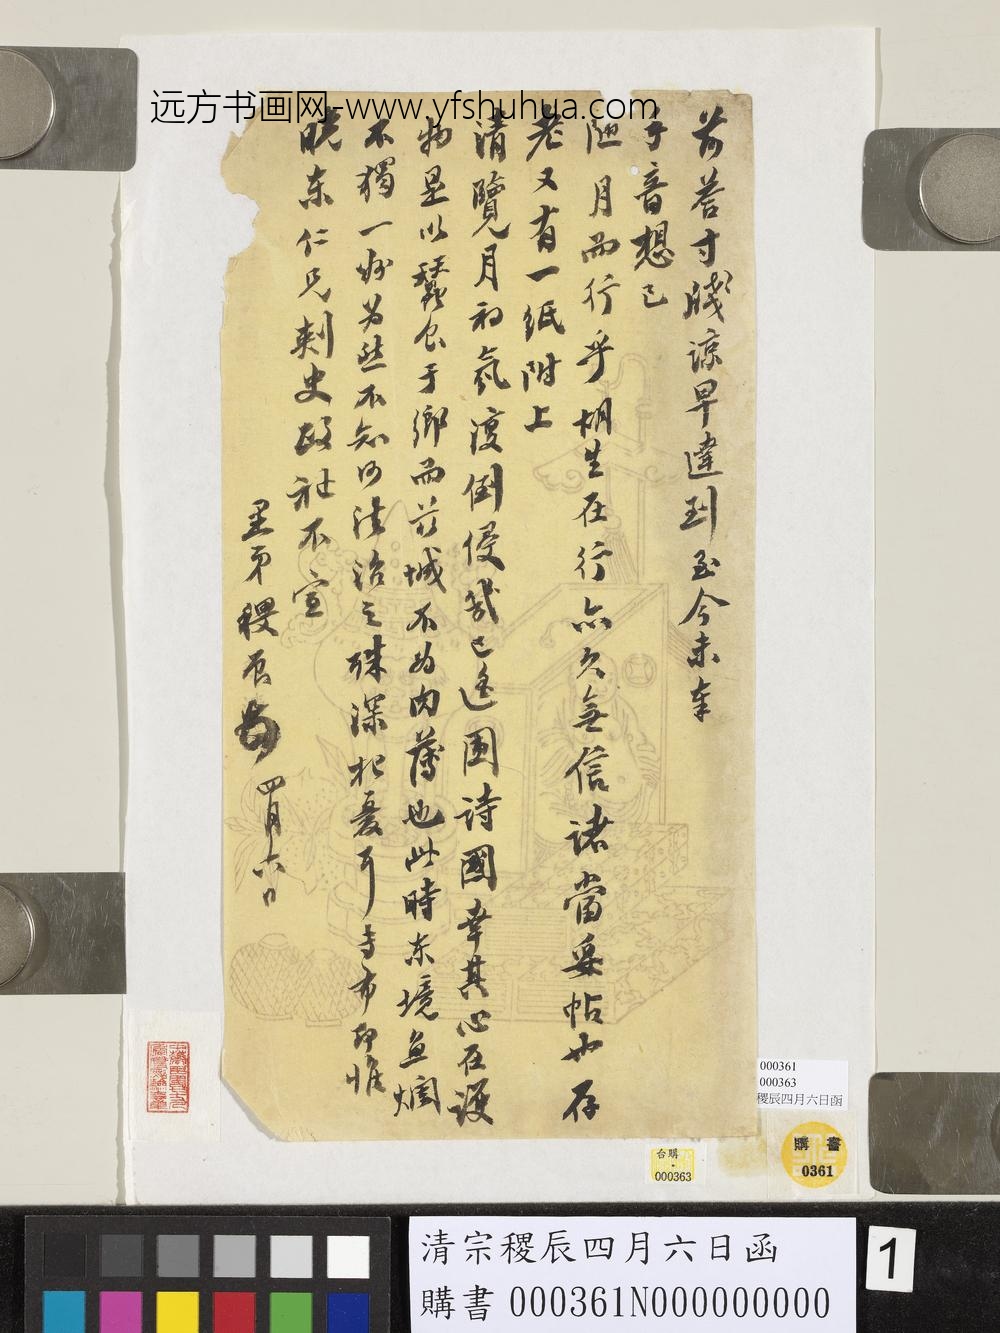 远方书画网-www.yfshuhua.com
前荅寸牋諒早達到至今未奉
子音想已
隨月而行乎胡生在行亦久無信諸當妥帖也存
老又有一紙附上
清覽月初氛復倒侵幾已遙圍詩國幸其心在護
物是以蠶食于鄉而於城不為肉薄也此時東境魚爛
不獨一州為然不知何法治之殊深杞憂耳專布即惟
曉東仁兄刺史政祉不宣
里弟稷辰
四月六日
000361
000363
稷辰四月六日函
購書
0361
台購
000363
清宗稷辰四月六日函
購書 000361N000000000
1